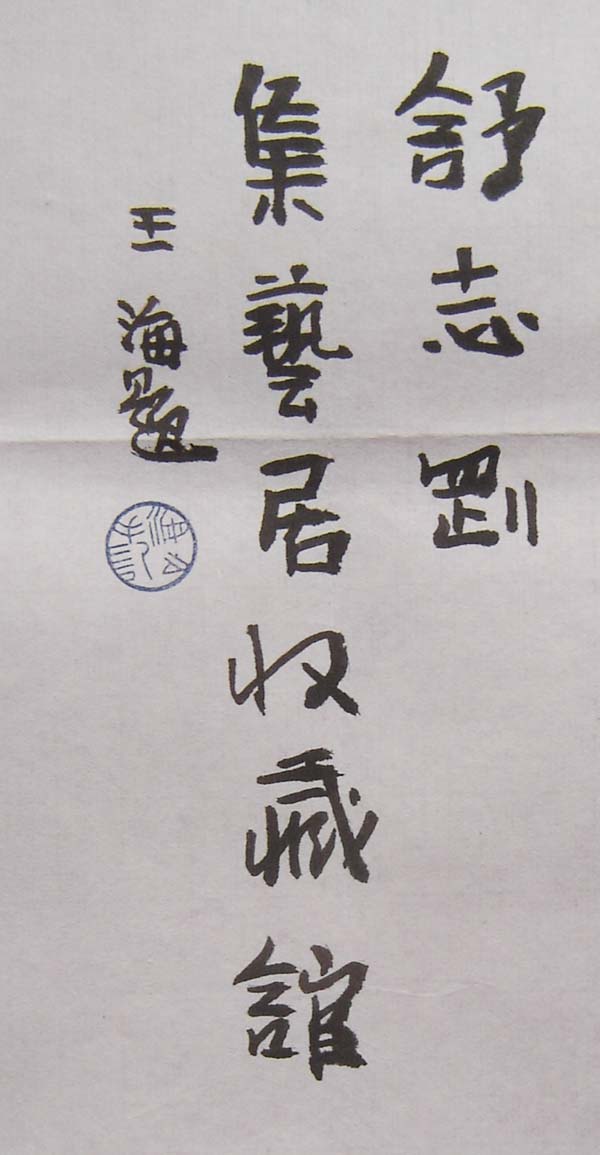 舒志剛
集藝居收藏舘
王海